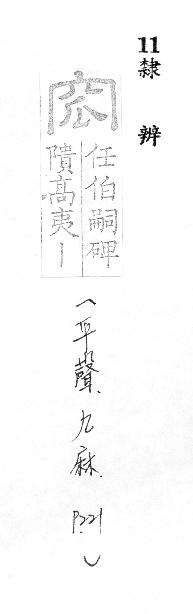 11隸辨
窊
任伯嗣碑
隤髙夷丨
(平聲.九麻.P.221)